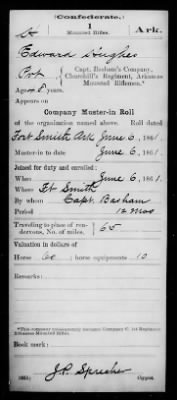 (Confederate.)
H 1 Ark.
Mounted Rifles.
Edward Hughes
Pvt, Capt. Basham's Company,
Churchill's Regiment, Arkansas
Mounted Riflemen.*
Age 18 years.
Appears on
Company Muster-in Roll
of the organization named above. Roll dated
Fort Smith Ark June 6, 1861.
Muster-in to date June 6, 1861.
Joined for duty and enrolled:
When June 6, 1861.
Where Ft Smith
By whom Capt. Basham
Period 12 Mos
Traveling to place of rendezvous, No. of miles. 65
Valuation in dollars of
Horse 60; horse equipments 10
Remarks:
*This company subsequently became Company C, 1st Regiment
Arkansas Mounted Rifles.
Book mark:
J.P. Sprecher
Copyist.